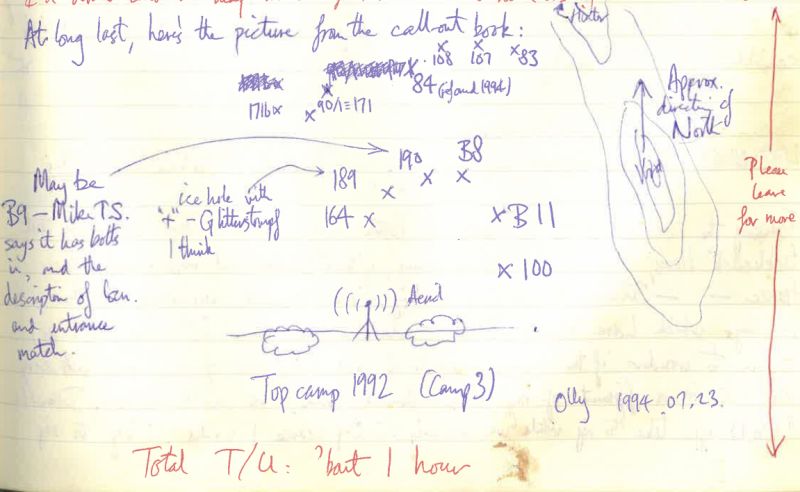 At long last, here's the picture from the call-out book:
Hinter
x 108 x 107 x 83
84 (refound 1994)
171b x x 90/1 = 171
Approx.
direction of
North
Please
leave
for more
190 B8
x x
189
x
164 x
x B11
x 100
May be
B9 – Mike T.S.
says it has bolts
in, and the
description of
and entrance
match.
ice hole with
"+" – Glitterstrumpf
I think
((( ))) Aerial
Top camp 1992 (Camp 3)
Olly 1994.07.23.
Total T/U: 'bout 1 hour